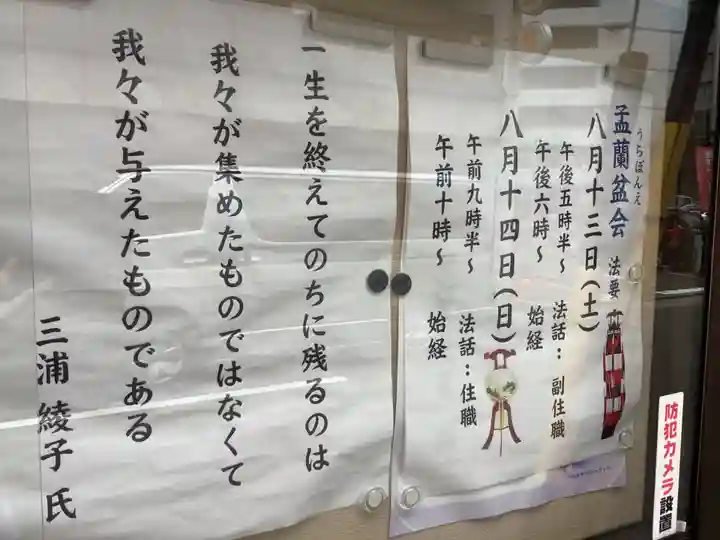 盂蘭盆会 法要
うらぼんえ
八月十三日(土)
午後五時半~ 法話:副住職
午後六時~ 始経
八月十四日(日)
午前九時半~ 法話:住職
午前十時~ 始経
一生を終えてのちに残るのは
我々が集めたものではなくて
我々が与えたものである
三浦綾子氏
防犯カメラ設置